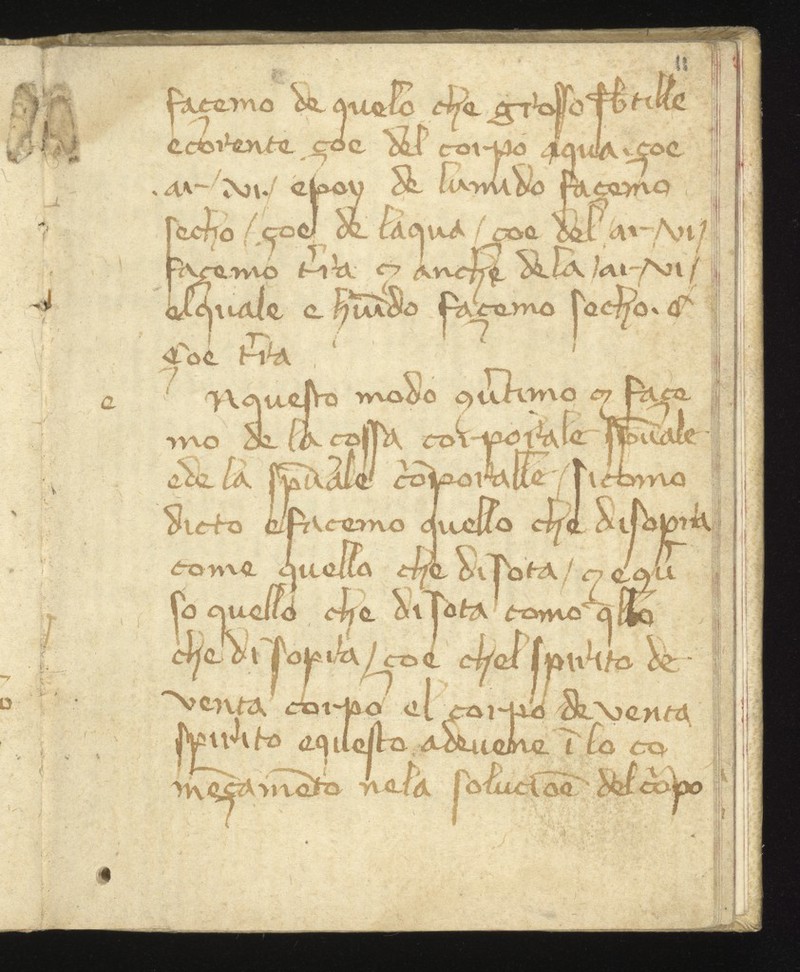 11
façemo de quelo che grosso sbtille
ecorente çoe del corpo aqua . çoe
. ar / vi / epoy de lumido façemo
secho / çoe de laqua / çoe del ar / vi /
façemo tr̄a ⁊ anche dela / ar / vi /
elquale e hūido façemo secho .
çoe tr̄a
e nquesto modo façe
mo de la cossa corporale spūale
ede la spūale corporalle / sicomo
dicto efacemo quello che disopra
come quello che disota / ⁊
so quello che disota como qllo
che disopra / çoe chel spirito de
venta corpo el corpo de venta
spirito equesto adeuene ī lo co
mēçamēto nela solucioē del corpo